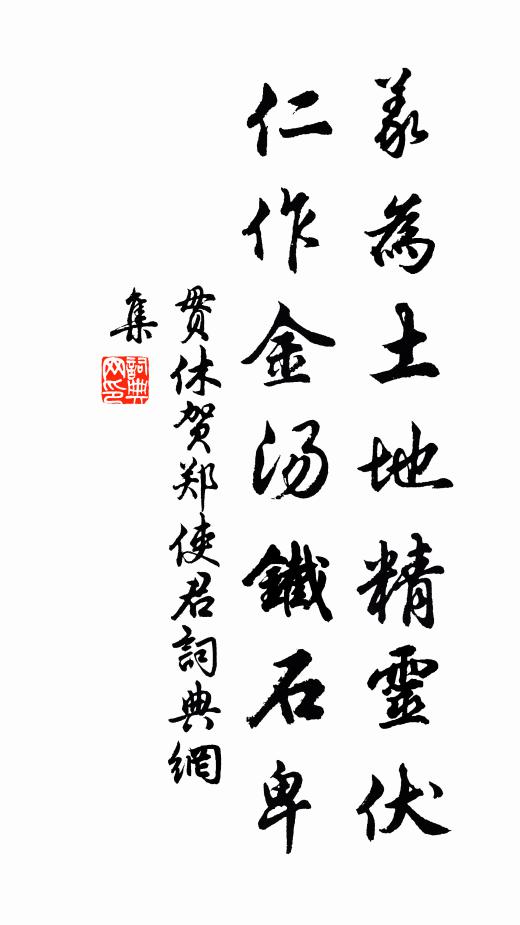 義為土地精靈伏
仁作金湯鐵石卑
贯休贺郑使君詞典網
集
詞典
网印